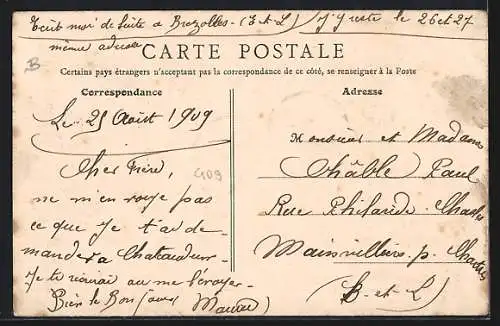 Ecrit moi de suite a Brezolles - (E-&-L) J'y reste le 26 et 27
même adresse
B
CARTE POSTALE
Certains pays étrangers n'acceptant pas la correspondance de ce côté, se renseigner à la Poste
Correspondance
Le 25 Août 1909
Cher Frère,
ne m'envoye pas
ce que je t'ai de-
mandé a Chateaudun -
Je te
Bien le Bonjour
Adresse
Monsieur et Madame
Châble Paul
Rue Philarède Chasles
Mainvilliers p. Chartres
(E-et-L)